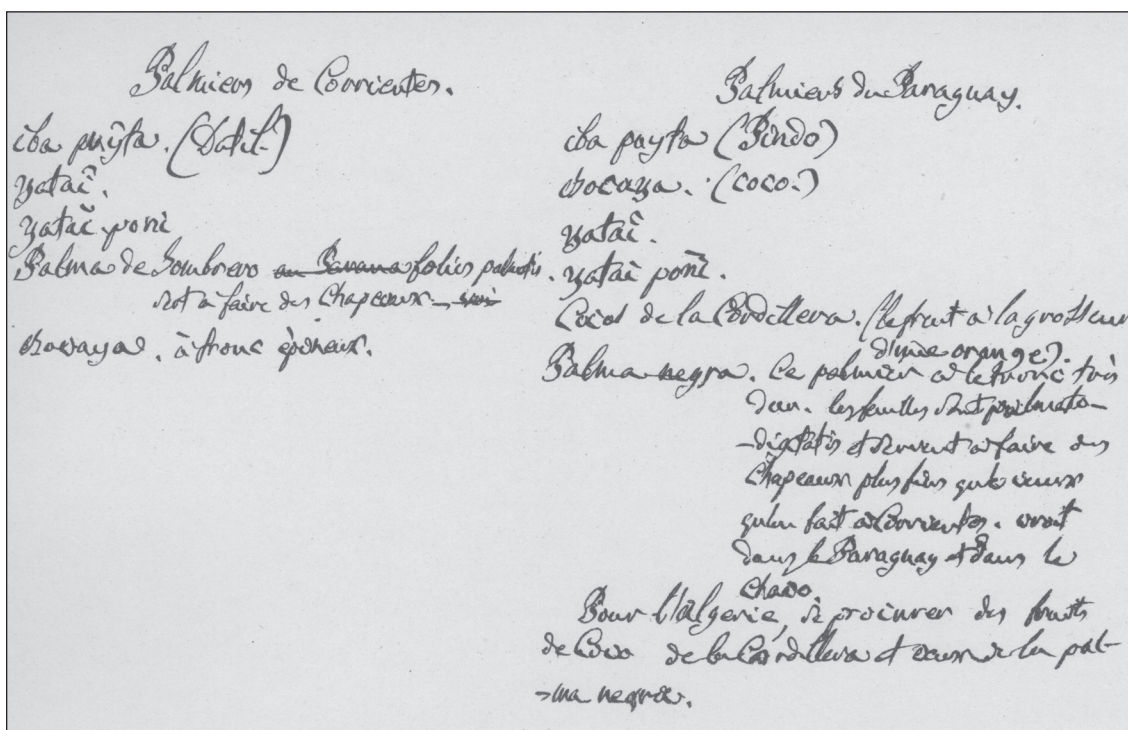 Palmiers de Corrientes.
iba puÿta. (Datil.)
yataî.
yataî poñi
Palma de Sombrero au Parana foliis palmatis.
sert à faire des Chapeaux
à tronc épineux.
Palmiers du Paraguay.
iba payta (Pindo)
bocaya. (coco.)
yataî.
yataî poñi.
Cocos de la Cordillera. (le fruit a la grosseur
d'une orange).
Palma negra. Ce palmier a le tronc très
dur. les feuilles sont palmato-
-digitatis et servent à faire des
Chapeaux plus fins que ceux
qu'on fait à Corrientes. croit
dans le Paraguay et dans le
Chaco.
Pour l'Algerie, se procurer des fruits
de Coco de la Cordillera et ceux de la pal-
-ma negra.